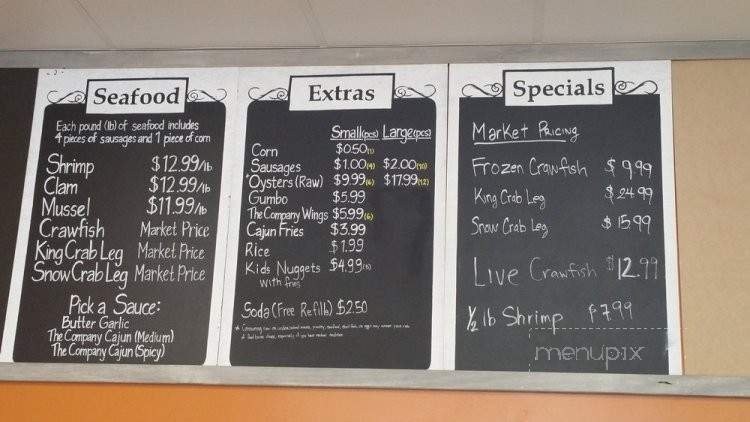 Seafood
Each pound (lb) of seafood includes
4 pieces of sausages and 1 piece of corn
Shrimp $12.99/lb
Clam $12.99/lb
Mussel $11.99/lb
Crawfish Market Price
King Crab Leg Market Price
Snow Crab Leg Market Price
Pick a Sauce:
Butter Garlic
The Company Cajun (Medium)
The Company Cajun (Spicy)
Extras
Small(pcs) Large(pcs)
Corn $0.50(1)
Sausages $1.00(4) $2.00(10)
*Oysters (Raw) $9.99(6) $17.99(12)
Gumbo $5.99
The Company Wings $5.99(6)
Cajun Fries $3.99
Rice $1.99
Kids Nuggets $4.99
with fries
Soda (Free Refills) $2.50
Specials
Market Pricing
Frozen Crawfish $9.99
King Crab Leg $24.99
Snow Crab Leg $15.99
Live Crawfish $12.99
1/2 lb Shrimp $7.99
menupix